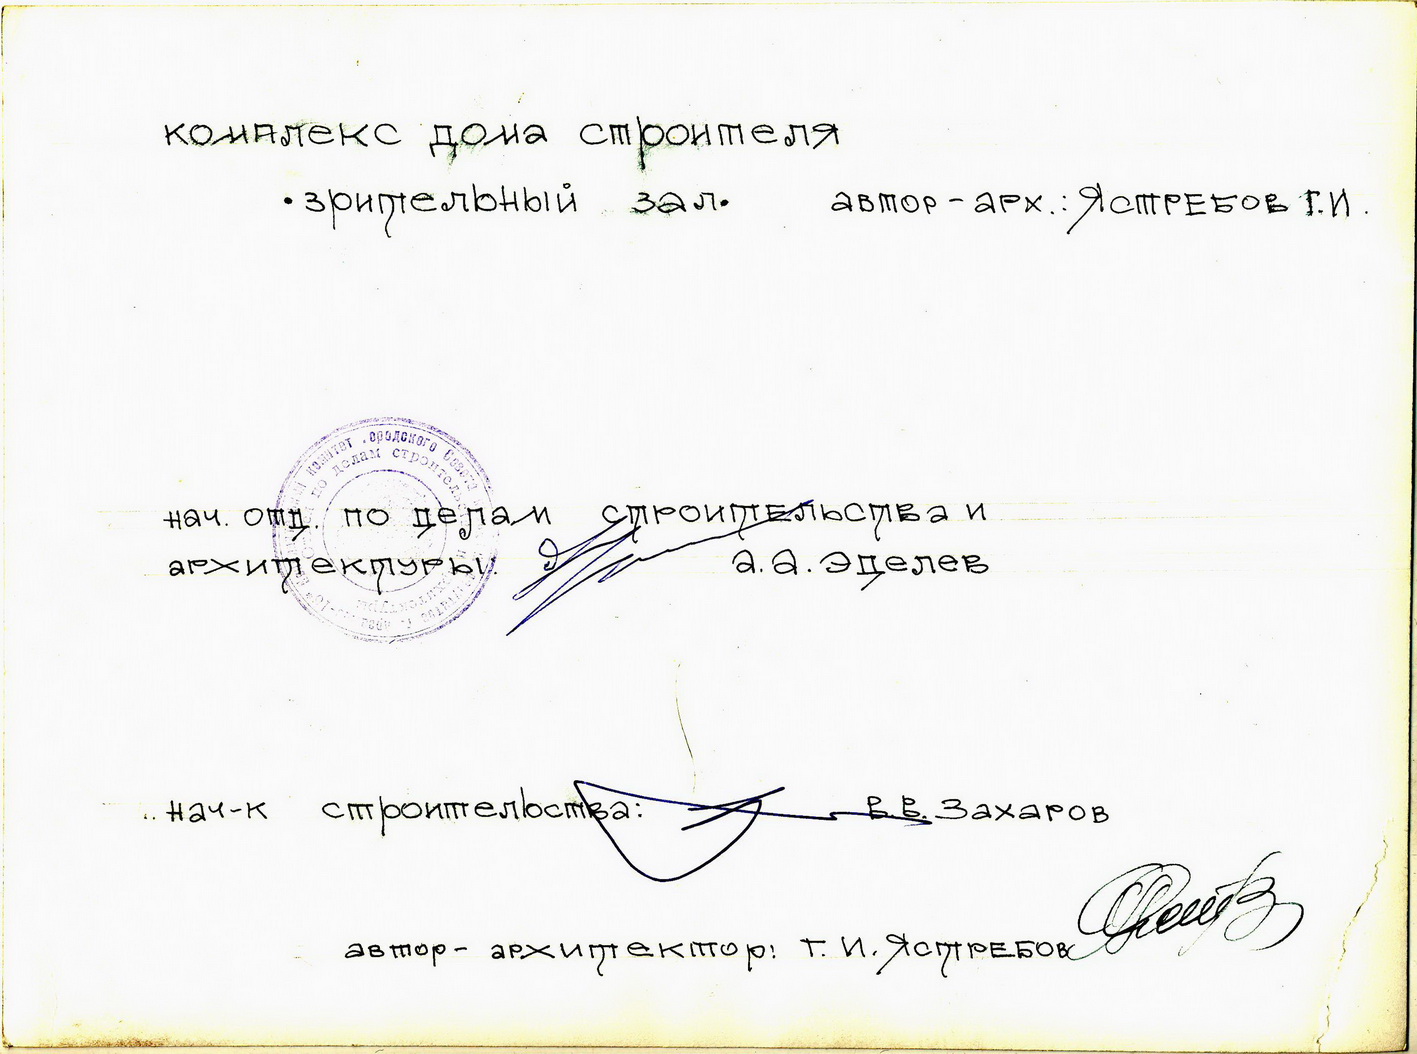 комплекс дома строителя
•зрительный зал• автор-арх.: Ястребов Г.И.
комитет городского Совета
по делам строительства и
нач. отд. по делам строительства и
архитектуры. А.А. Эделев
нач-к строительства: В.В. Захаров
автор-архитектор: Г.И. Ястребов